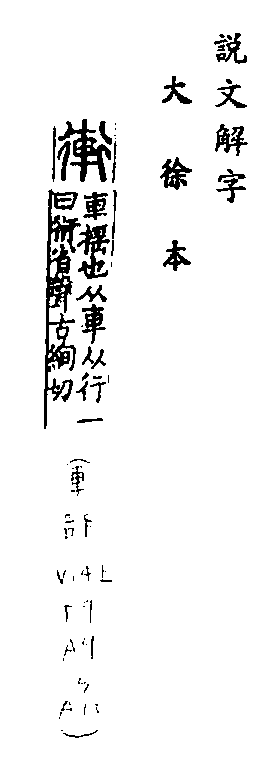 說文解字
大徐本
𨊻
車摇也从車从行一
曰衍省聲古絢切
車部